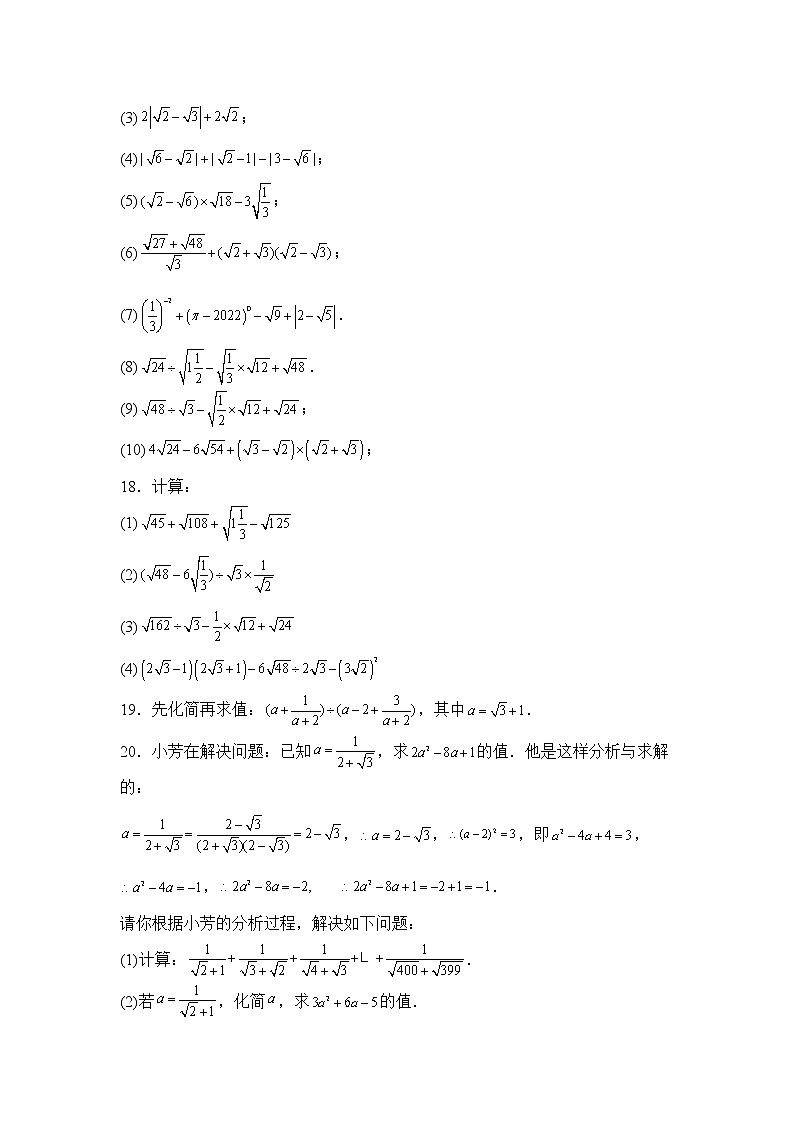 (3) 2|√2−√3|+2√2；
(4) |√6−√2|+|√2−1|−|3−√6|；
(5) (√2−√6)×√18−3√(1/3)；
(6) (√27+√48)/√3+(√2+√3)(√2−√3)；
(7) (1/3)⁻²+(π−2022)⁰−√9+|2−√5|．
(8) √24÷√(1 1/2)−√(1/3)×√12+√48．
(9) √48÷√3−√(1/2)×√12+√24；
(10) 4√24−6√54+(√3−√2)×(√2+√3)；
18．计算：
(1) √45+√108+√(1 1/3)−√125
(2) (√48−6√(1/3))÷√3×1/√2
(3) √162÷√3−1/2×√12+√24
(4) (2√3−1)(2√3+1)−6√48÷2√3−(3√2)²
19．先化简再求值：(a+1/(a+2))÷(a−2+3/(a+2))，其中a=√3+1．
20．小芳在解决问题：已知a=1/(2+√3)，求2a²−8a+1的值．他是这样分析与求解
的：
a=1/(2+√3)=(2−√3)/((2+√3)(2−√3))=2−√3，∴a=2−√3，∴(a−2)²=3，即a²−4a+4=3，
∴a²−4a=−1，∴2a²−8a=−2, ∴2a²−8a+1=−2+1=−1．
请你根据小芳的分析过程，解决如下问题：
(1)计算：1/(√2+1)+1/(√3+√2)+1/(√4+√3)+L+1/(√400+√399)．
(2)若a=1/(√2+1)，化简a，求3a²+6a−5的值．